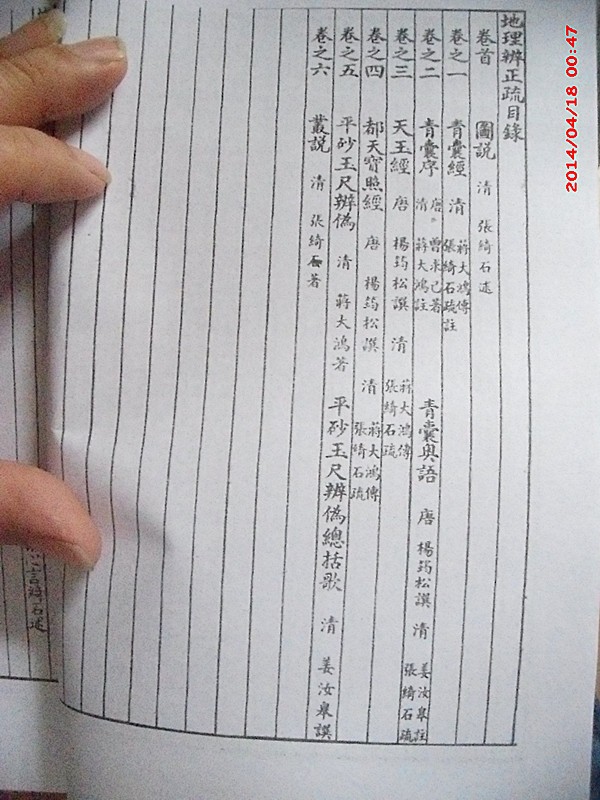 地理辨正疏目錄
卷首 圖說 清 張綺石述
卷之一 青囊經 清 蔣大鴻傳 張綺石疏註
卷之二 青囊序 唐 曾求己著 清 蔣大鴻註 青囊奧語 唐 楊筠松譔 清 姜汝皋註 張綺石疏
卷之三 天玉經 唐 楊筠松譔 清 蔣大鴻傳 張綺石疏
卷之四 都天寶照經 唐 楊筠松譔 清 蔣大鴻傳 張綺石疏
卷之五 平砂玉尺辨偽 清 蔣大鴻著 平砂玉尺辨偽總括歌 清 姜汝皋譔
卷之六 叢說 清 張綺石著
言綺石述
2014/04/18 00:47